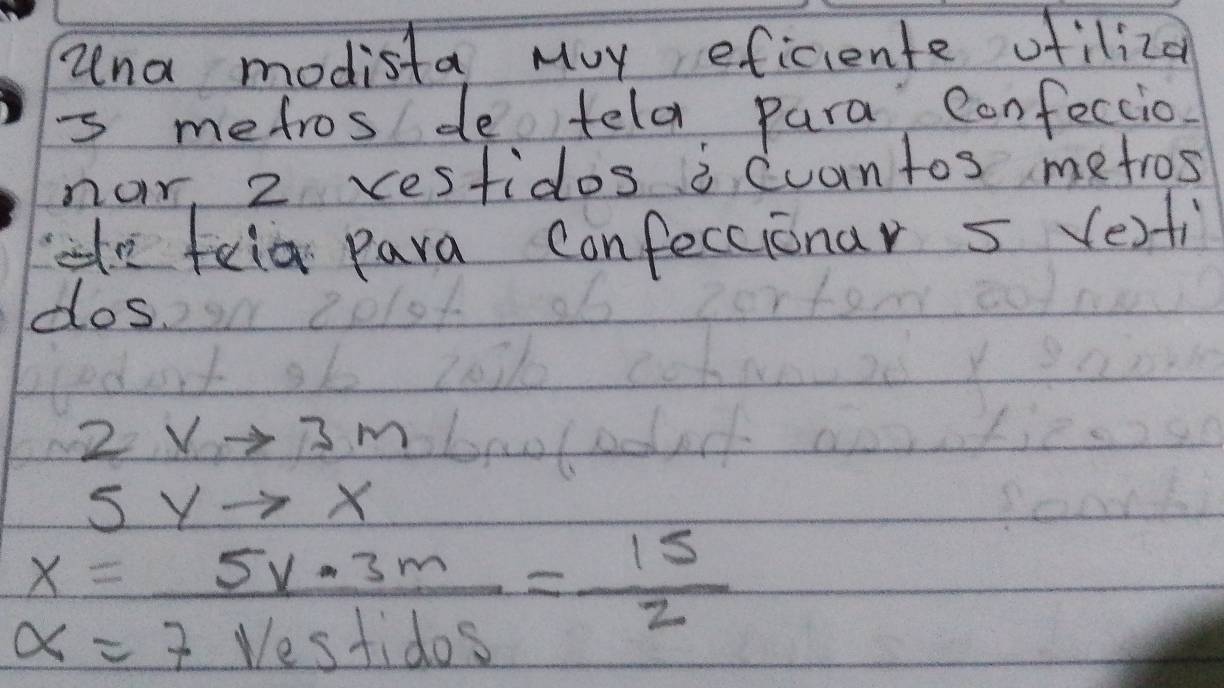 Una modista muy eficiente utiliza
3 metros de tela para confeccio-
nar 2 vestidos ¿cuantos metros
de tela para confeccionar 5 vesti
dos.
2 V → 3 m
5 V → X
x = 5V . 3 m = 15
2
x = 7 Vestidos